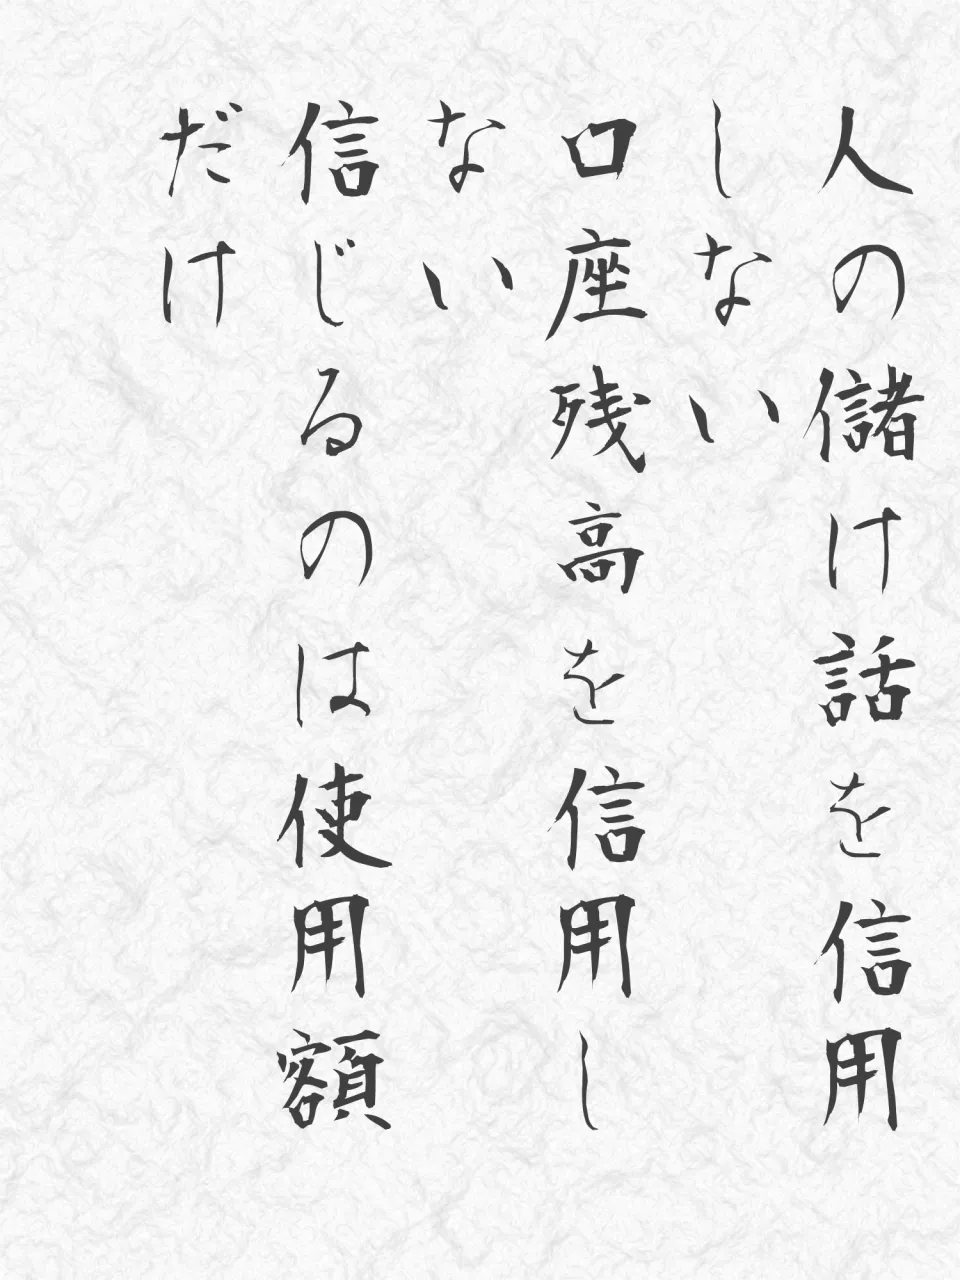 人の儲け話を信用
しない
口座残高を信用し
ない
信じるのは使用額
だけ